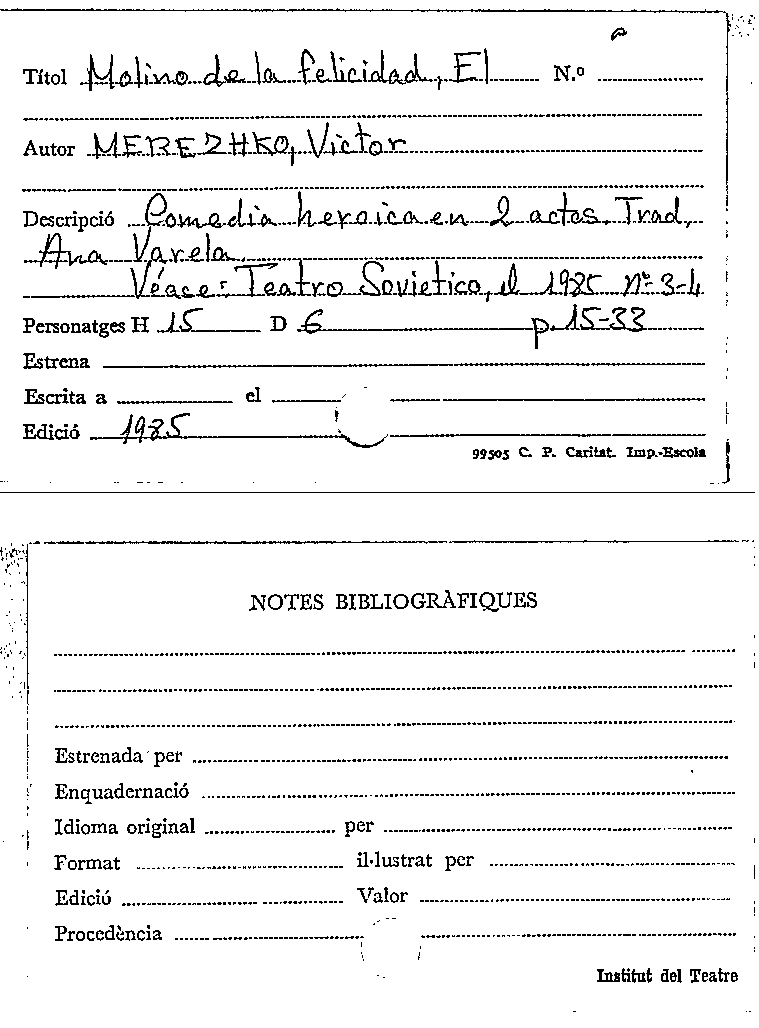 Títol Molino de la felicidad, El N.º
Autor MEREZHKO, Victor
Descripció Comedia heroica en 2 actos. Trad,
Ana Varela.
Véace: Teatro Sovietico, el 1985 nº 3-4
Personatges H 15 D 6 p. 15-33
Estrena
Escrita a el
Edició 1985
99505 C. P. Caritat. Imp.-Escola
NOTES BIBLIOGRÀFIQUES
Estrenada per
Enquadernació
Idioma original per
Format il·lustrat per
Edició Valor
Procedència
Institut del Teatre